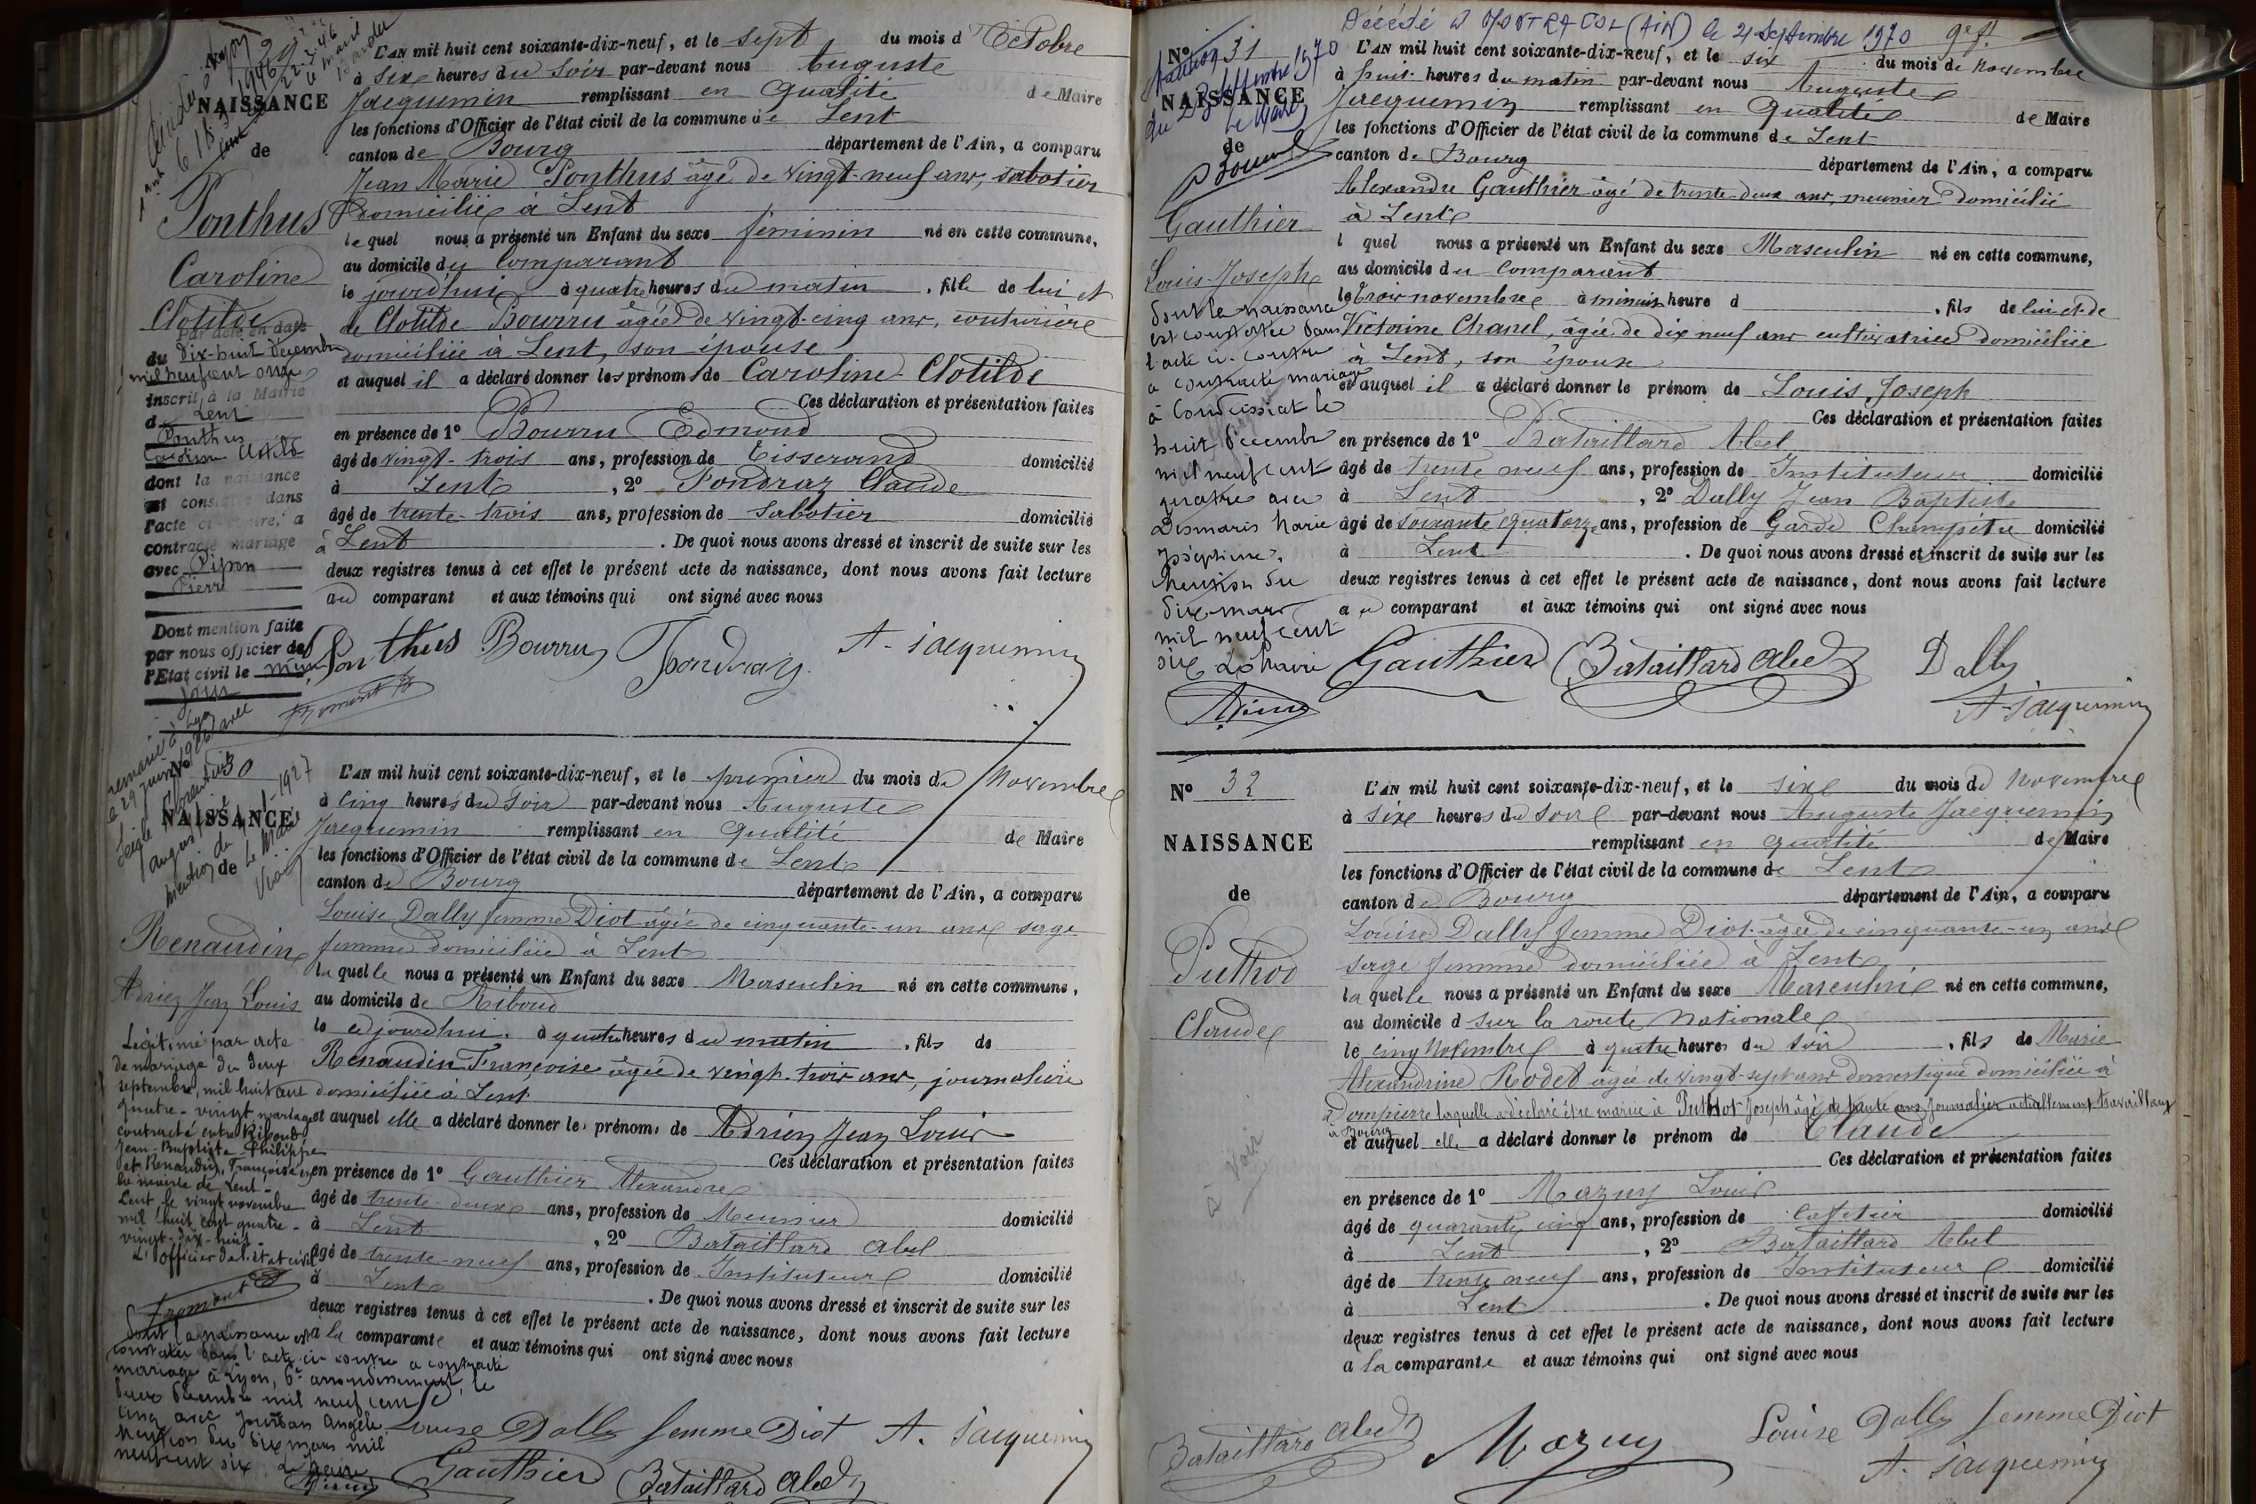 29
L'AN mil huit cent soixante-dix-neuf, et le sept du mois d'Octobre
à Six heures du Soir par-devant nous Auguste
Jacquemin remplissant en Qualité de Maire
les fonctions d'Officier de l'état civil de la commune de Lent
canton de Bourg département de l'Ain, a comparu
Jean Marie Ponthus âgé de vingt-neuf ans, sabotier
domicilié à Lent
lequel nous a présenté un Enfant du sexe féminin né en cette commune,
au domicile du Comparant
le jourd'hui à quatre heures du matin, fille de lui et
de Clotilde Bourru âgée de vingt-cinq ans, couturière
domiciliée à Lent, son épouse
et auquel il a déclaré donner les prénoms de Caroline Clotilde
Ces déclaration et présentation faites
en présence de 1° Bourru Edmond
âgé de vingt-trois ans, profession de Tisserand domicilié
à Lent, 2° Fondraz Claude
âgé de trente-trois ans, profession de Sabotier domicilié
à Lent. De quoi nous avons dressé et inscrit de suite sur les
deux registres tenus à cet effet le présent acte de naissance, dont nous avons fait lecture
au comparant et aux témoins qui ont signé avec nous
Ponthus Bourru Fondraz A. Jacquemin
NAISSANCE
de
Ponthus
Caroline
Clotilde
Par acte en date
du Dix-huit Décembre
mil neuf cent onze
inscrit à la Mairie
d Lent
Ponthus
Caroline Clotilde
dont la naissance
est constatée dans
l'acte ci-contre, a
contracté mariage
avec Pipon
Pierre
Dont mention faite
par nous officier de
l'Etat civil le même
jour
remarié à Lyon
le 29 juin 1926 avec
N° 30
NAISSANCE
de
Renaudin
Adrien Jean Louis
Légitimé par acte
de mariage du deux
septembre, mil huit cent
quatre-vingt mariage
contracté entre Riboud
Jean-Baptiste Philippe
et Renaudin Françoise en
la mairie de Lent
Lent, le vingt novembre
mil huit cent quatre-
vingt-dix-huit
L'officier de l'état civil
Fromont
Dont la naissance est
constatée dans l'acte ci-contre a contracté
mariage à Lyon, 6e arrondissement, le
deux décembre mil neuf cent
cinq avec Jourdan Angèle
Mention du dix mars mil
neuf cent six Le Maire
L'AN mil huit cent soixante-dix-neuf, et le premier du mois de Novembre
à Cinq heures du Soir par-devant nous Auguste
Jacquemin remplissant en Qualité de Maire
les fonctions d'Officier de l'état civil de la commune de Lent
canton de Bourg département de l'Ain, a comparu
Louise Dally femme Diot âgée de cinquante-un ans sage
femme domiciliée à Lent
laquelle nous a présenté un Enfant du sexe Masculin né en cette commune,
au domicile de Riboud
le ajourd'hui à quatre heures du matin, fils de
Renaudin Françoise âgée de vingt-trois ans, journalière
domiciliée à Lent
et auquel elle a déclaré donner les prénoms de Adrien Jean Louis
Ces déclaration et présentation faites
en présence de 1° Gauthier Alexandre
âgé de trente-deux ans, profession de Meunier domicilié
à Lent, 2° Bataillard Abel
âgé de trente-neuf ans, profession de Instituteur domicilié
à Lent. De quoi nous avons dressé et inscrit de suite sur les
deux registres tenus à cet effet le présent acte de naissance, dont nous avons fait lecture
à la comparante et aux témoins qui ont signé avec nous
Louise Dally femme Diot A. Jacquemin
Gauthier Bataillard Abel
Décédé à MONTRACOL (AIN) le 21 Septembre 1970
N° 31
Mention
du 23 Septembre 1970
Le Maire
NAISSANCE
de
Gauthier
Louis Joseph
Dont la naissance
est constatée dans
l'acte ci-contre
a contracté mariage
à Condeissiat le
huit Décembre
mil neuf cent
quatre avec
Desmaris Marie
Joséphine.
Mention du
dix mars
mil neuf cent
six Le Maire
L'AN mil huit cent soixante-dix-neuf, et le six du mois de Novembre
à huit heures du matin par-devant nous Auguste
Jacquemin remplissant en Qualité de Maire
les fonctions d'Officier de l'état civil de la commune de Lent
canton de Bourg département de l'Ain, a comparu
Alexandre Gauthier âgé de trente-deux ans, meunier domicilié
à Lent
lequel nous a présenté un Enfant du sexe Masculin né en cette commune,
au domicile du Comparant
le trois novembre à minuit heure d, fils de lui et de
Victorine Chanel, âgée de dix neuf ans cultivatrice domiciliée
à Lent, son épouse
et auquel il a déclaré donner le prénom de Louis Joseph
Ces déclaration et présentation faites
en présence de 1° Bataillard Abel
âgé de trente neuf ans, profession de Instituteur domicilié
à Lent, 2° Dally Jean Baptiste
âgé de soixante quatorze ans, profession de Garde Champêtre domicilié
à Lent. De quoi nous avons dressé et inscrit de suite sur les
deux registres tenus à cet effet le présent acte de naissance, dont nous avons fait lecture
au comparant et aux témoins qui ont signé avec nous
Gauthier Bataillard Abel Dally
A. Jacquemin
N° 32
NAISSANCE
de
Puthod
Claude
à voir
L'AN mil huit cent soixante-dix-neuf, et le six du mois de Novembre
à six heures du Soir par-devant nous Auguste Jacquemin
remplissant en qualité de Maire
les fonctions d'Officier de l'état civil de la commune de Lent
canton de Bourg département de l'Ain, a comparu
Louise Dally femme Diot âgée de cinquante-un ans
sage femme domiciliée à Lent
laquelle nous a présenté un Enfant du sexe Masculin né en cette commune,
au domicile d sur la route Nationale
le cinq Novembre à quatre heures du Soir, fils de Marie
Alexandrine Rodet âgée de vingt-sept ans domestique domiciliée à
Dompierre laquelle a déclaré être mariée à Puthot Joseph âgé de trente ans Journalier actuellement travaillant
à Bourg
et auquel elle a déclaré donner le prénom de Claude
Ces déclaration et présentation faites
en présence de 1° Mazuy Louis
âgé de quarante cinq ans, profession de Cafetier domicilié
à Lent, 2° Bataillard Abel
âgé de trente neuf ans, profession de Instituteur domicilié
à Lent. De quoi nous avons dressé et inscrit de suite sur les
deux registres tenus à cet effet le présent acte de naissance, dont nous avons fait lecture
a la comparante et aux témoins qui ont signé avec nous
Bataillard Abel Mazuy Louise Dally femme Diot
A. Jacquemin